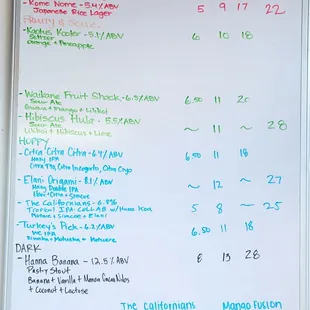 - Kome Nome - 5.4% ABV 5 9 17 22
Japanese Rice Lager
Fruity & Sour
- Kactus Kooler - 5.1% ABV 6 10 18
Seltzer
Orange + Pineapple
- Waikane Fruit Shack - 6.5% ABV 6.50 11 20
Sour Ale
Guava + Mango + Lilikoi
- Hibiscus Hula - 5.5% ABV ~ 11 ~ 28
Sour Ale
Lilikoi + Hibiscus + Lime
HOPPY
- Citra Citra Citra - 6.9% ABV 6.50 11 18
Hazy IPA
Citra T90, Citra Incognito, Citra Cryo
- Elani Origami - 8.1% ABV ~ 12 ~ 27
Hazy Double IPA
Elani + Citra + Simcoe
- The Californians - 6.8% 5 8 ~ 25
Tropical IPA COLLAB w/ Hana Koa
Mosaic + Simcoe + Elani
- Turkey's Pick - 6.2% ABV 6.50 11 18
IPA
Riwaka + Motueka +
DARK
- Hanna Banana - 12.5% ABV 8 13 28
Pastry Stout
Banana + Vanilla + Cacao Nibs
+ Coconut + Lactose
The Californians Mango Fusion